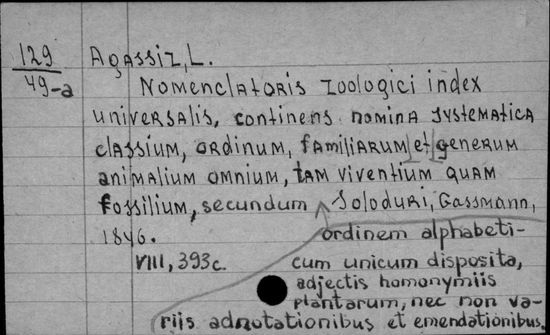 129
49-a
Agassiz, L.
Nomenclatoris zoologici index
universalis, continens nomina systematica
classium, ordinum, familiarum et generum
animalium omnium, tam viventium quam
fossilium, secundum Soloduri, Gassmann,
1846.
ordinem alphabeti-
VIII, 393 c.
cum unicum disposita,
adjectis homonymiis
plantarum, nec non va-
riis adnotationibus et emendationibus.